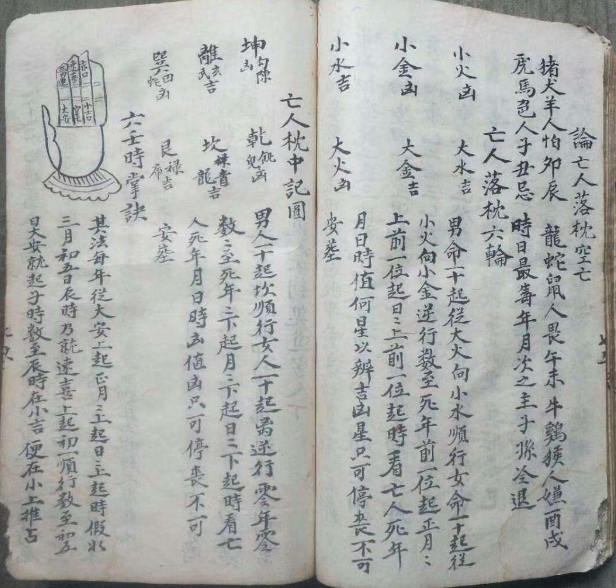 論亡人落枕空亡
猪犬羊人怕卯辰 龍蛇鼠人畏午未 牛鷄猴人嫌酉戌
虎馬兔人子丑忌 時日最毒年月次之主子孫冷退
亡人落枕六輪
小火凶 大水吉 男命一十起從大火向小水順行女命一十起從
小金凶 大金吉 小火向小金逆行数至死年前一位起正月〻
小水吉 大火凶 上前一位起日〻上前一位起時看亡人死年
月日時值何星以辨吉凶星只可停喪不可
安塟
亡人枕中記圖
坤勾陳凶 乾㐫凶 男人一十起坎順行女人一十起离逆行零年零
離玄武吉 坎青龍吉 数〻至死年〻下起月〻下起日〻下起時看亡
巽四蛇凶 艮禄吉 人死年月日時 值凶只可停喪不可
安塟
六壬時掌訣
其法每年從大安上起正月〻上起日〻上起時假如
三月初五日辰時乃就速喜上起初一順行数至初五
日大安就起子時数至辰時在小吉 便在小上推占